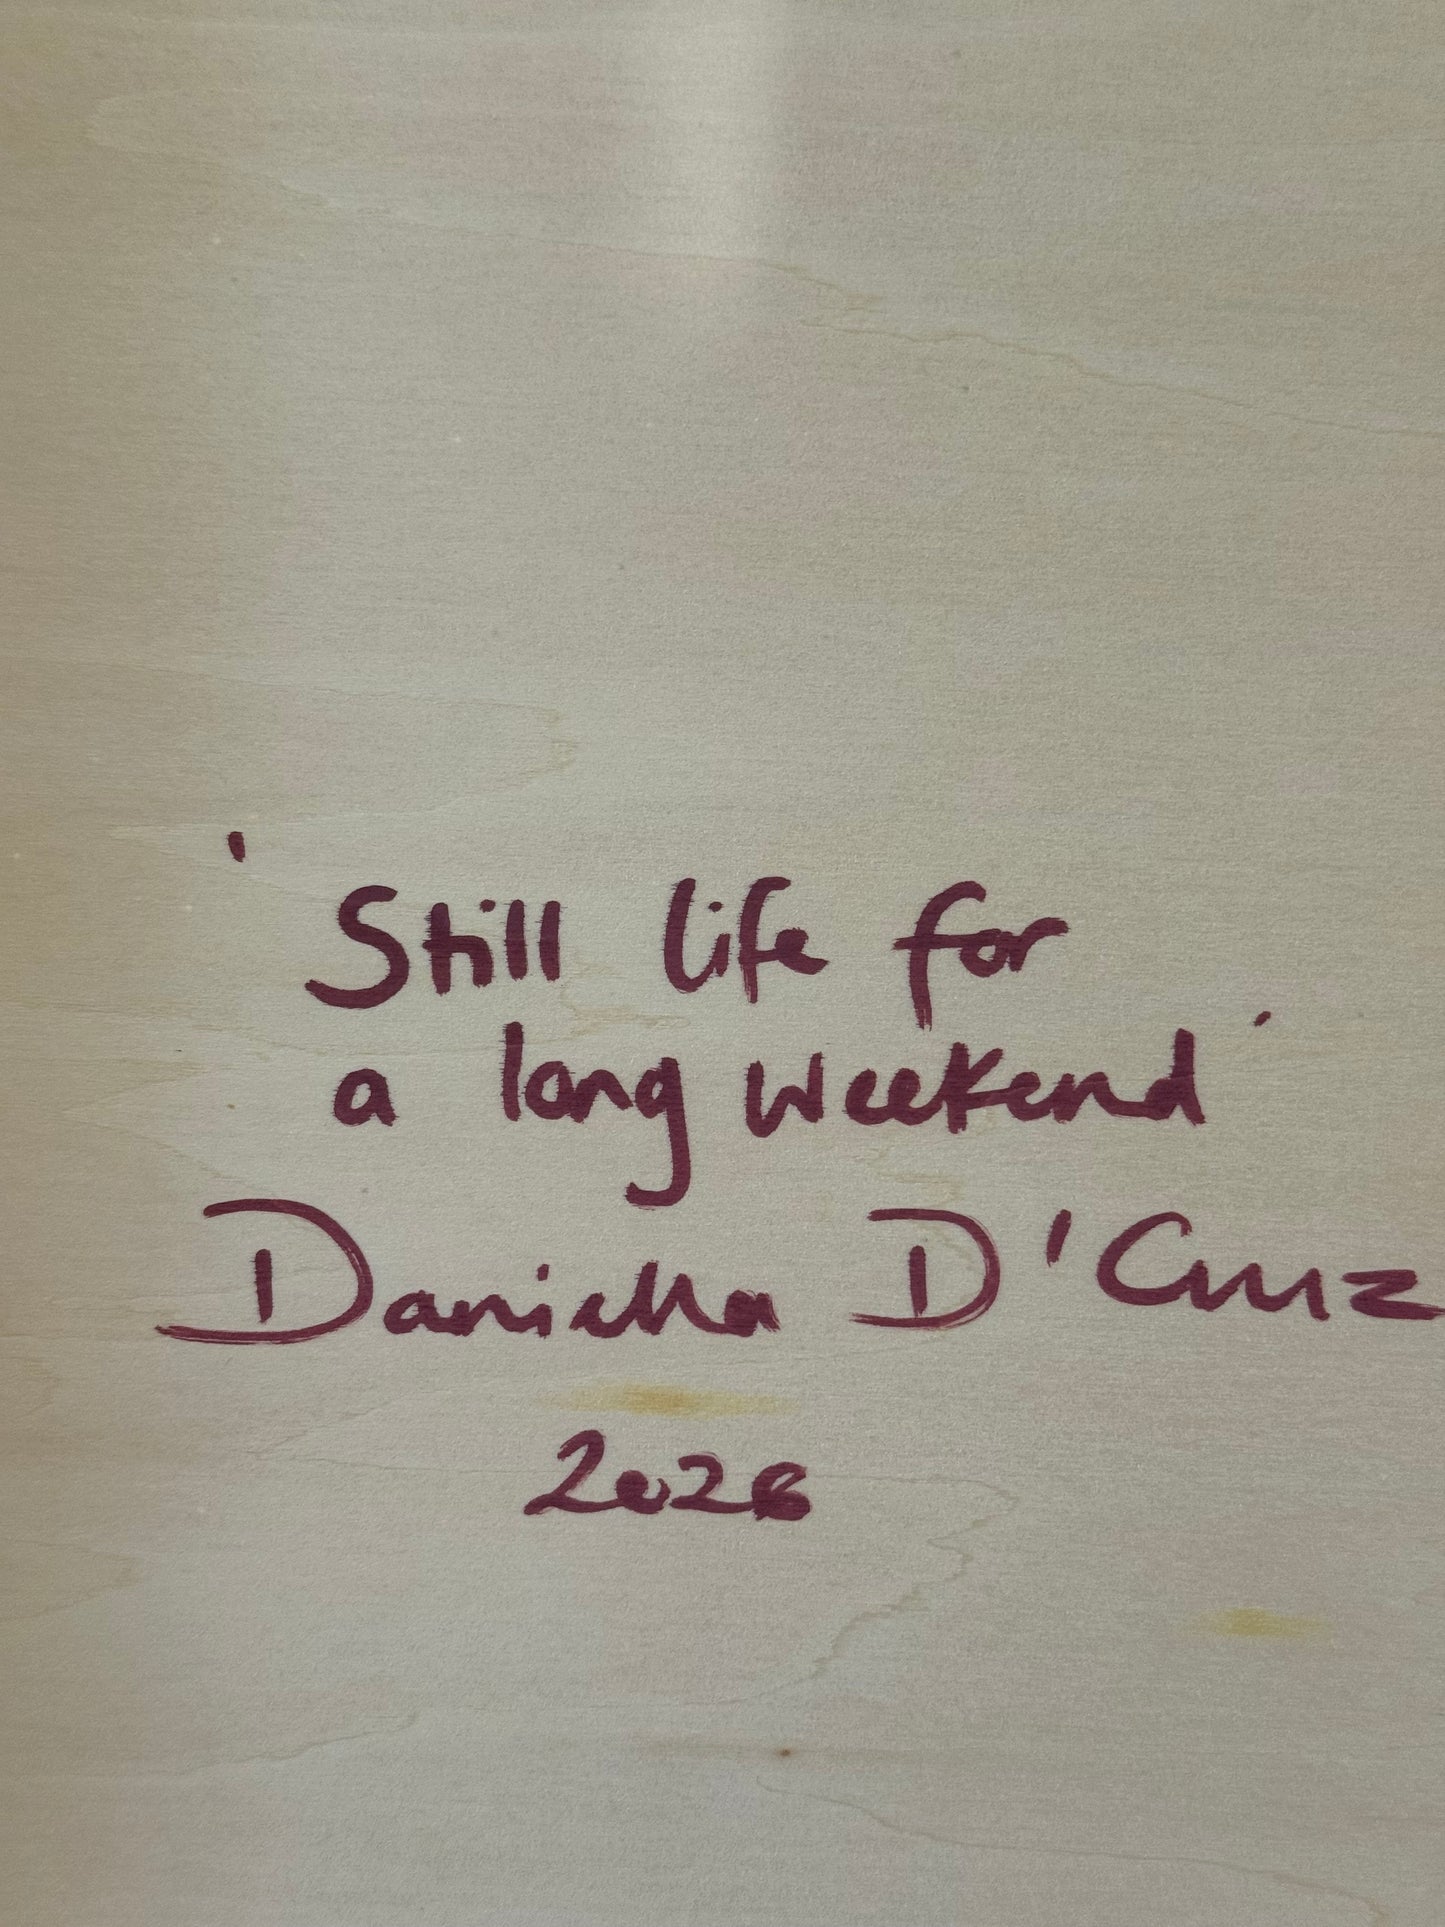 'Still life for
a long weekend'
Daniella D'Cruz
2026